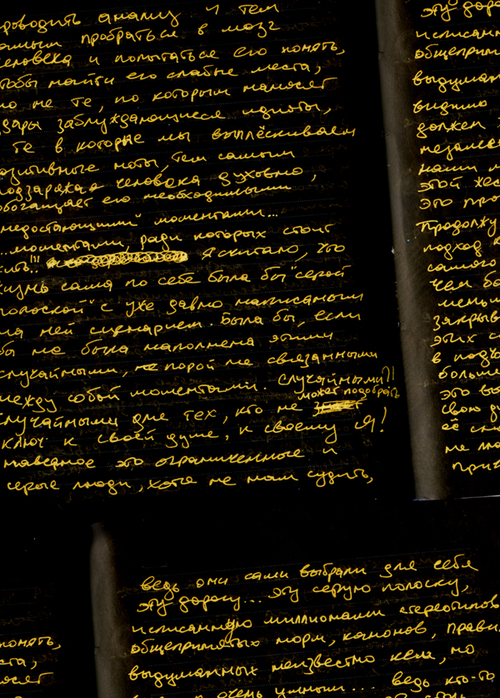 проводить анализ. И тем
самым пробраться в мозг
человека и попытаться его понять,
чтобы найти его слабые места,
но не те, по которым наносят
удары заблуждающиеся идиоты,
а те в которые мы выплёскиваем
позитивные ноты, тем самым
подзаряжая человека духовно,
обогащает его необходимыми
"недостающими" моментами...
...моментами, ради которых стоит
жить!!! Я считаю, что
жизнь сама по себе была бы "серой
полоской" с уже давно написанным
на ней сценарием. Была бы, если
бы не была наполнена этими
случайными, не порой не связанными
между собой моментами. Случайными?!
может подобрать
Случайными для тех, кто не
ключ к своей душе, к своему Я!
Наверное это ограниченные и
серые люди, хотя не нам судить,
эту дорог
исписанну
общеприн
выдуман
видимо
должен
незамеч
нами м
этой же
Это про
Продолжу
подход
самого
чем бо
мень
закрыв
этих с
в подъ
больши
это вы
свою д
её см
не лю
При
ведь они сами выбрали для себя
эту дорогу... эту серую полоску,
исписанную миллионами стереотипов
общепринятых норм, канонов, прави
выдуманных неизвестно кем, но
очень ценными... ведь кто-то
понять,
ста,
носят